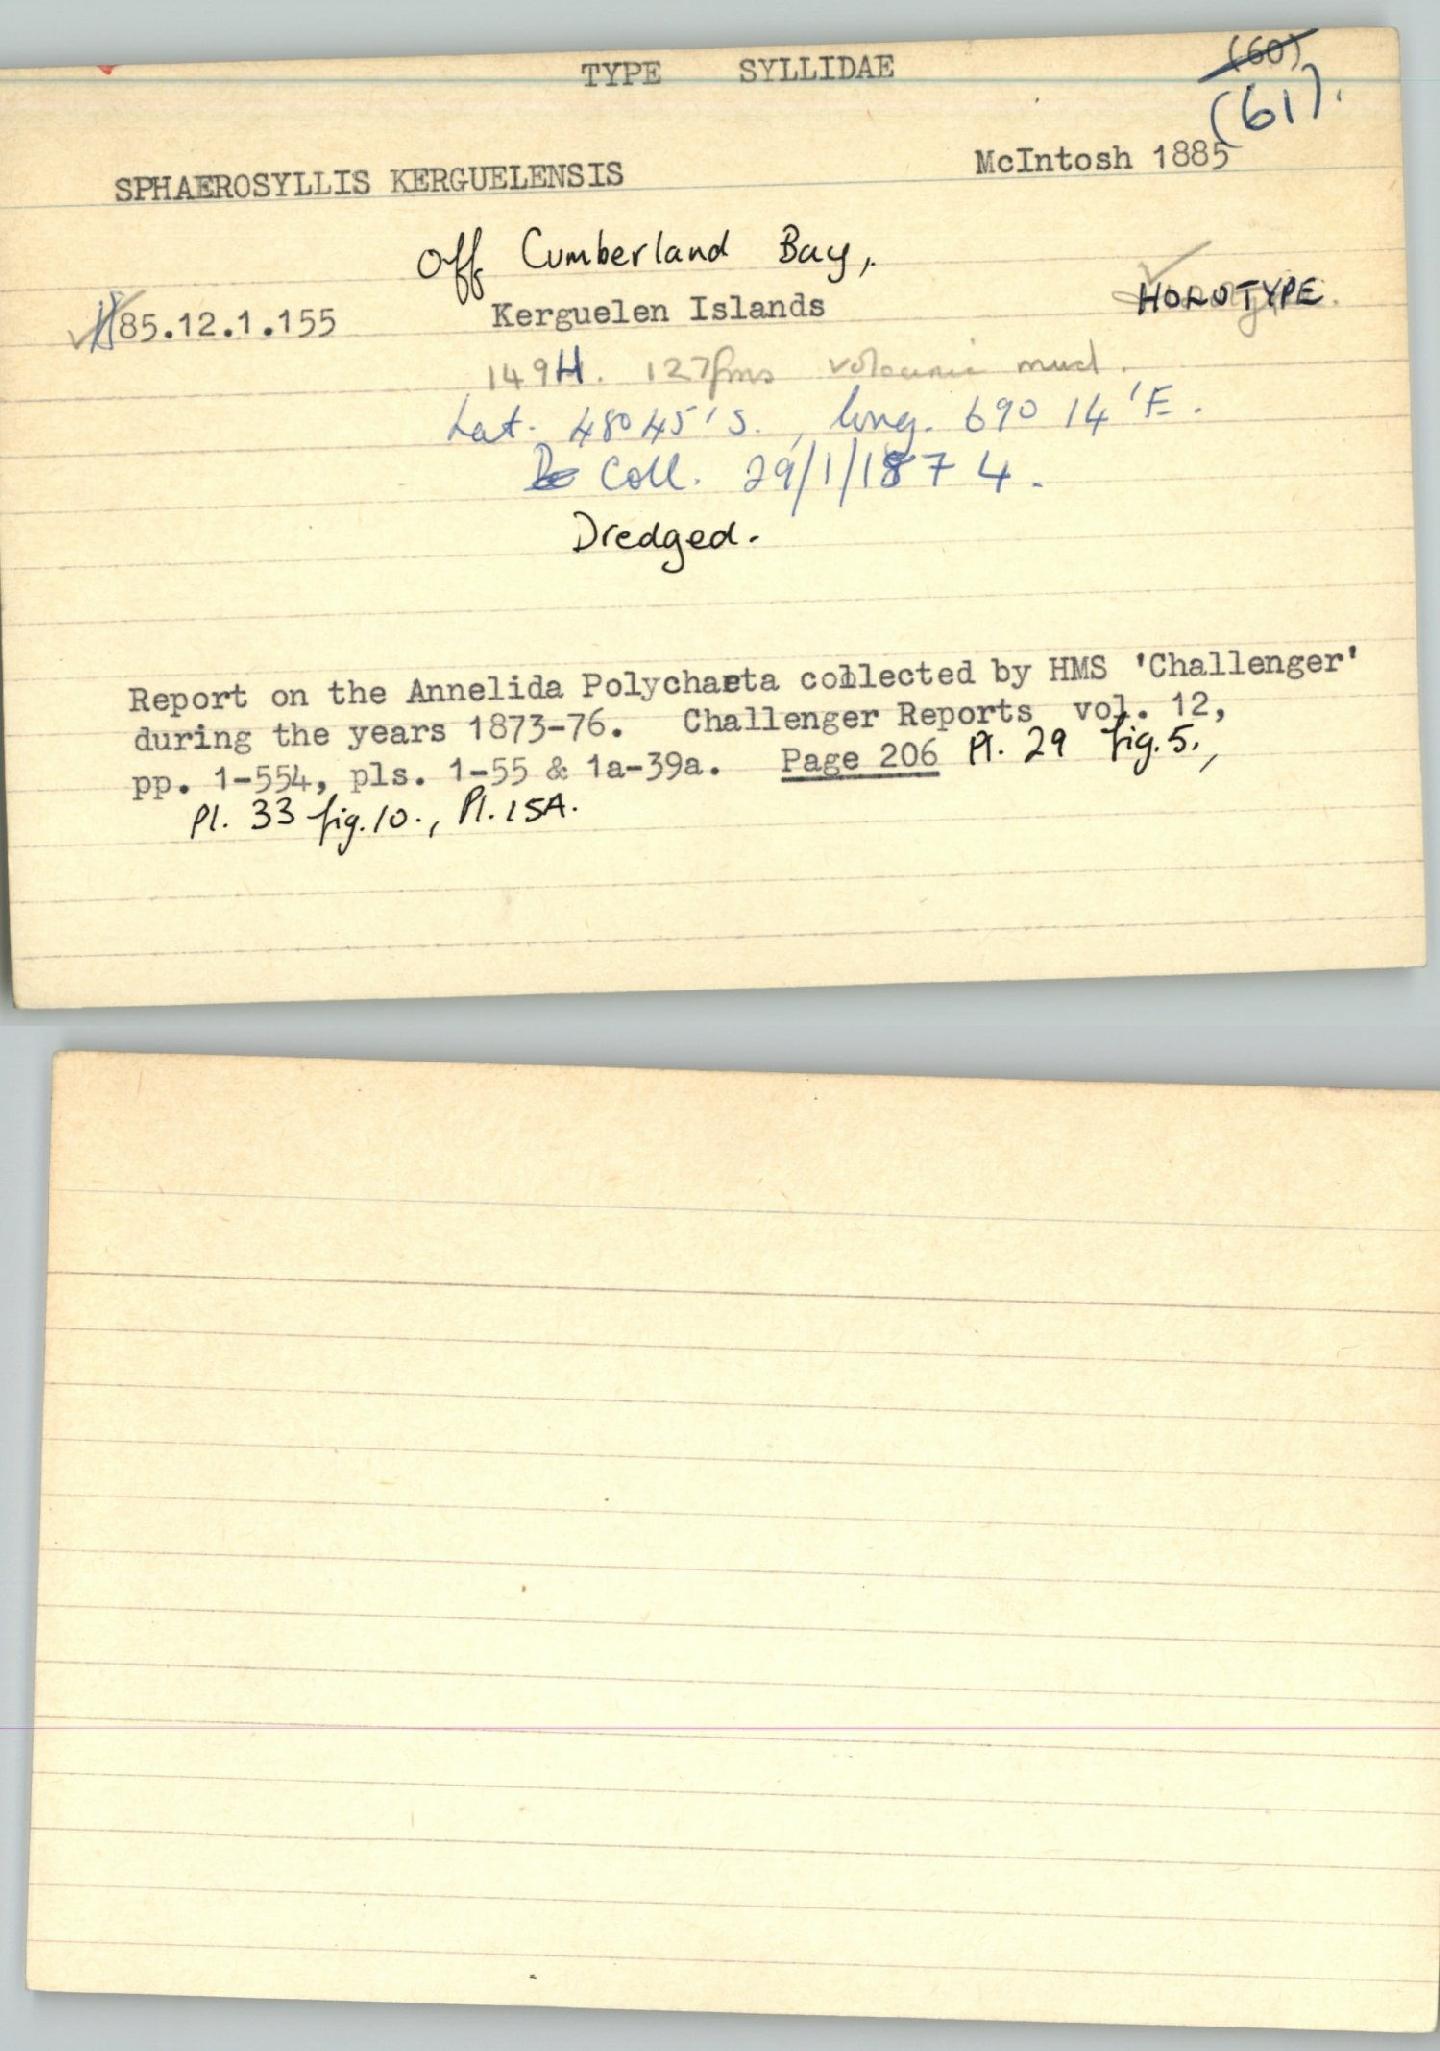 TYPE SYLLIDAE
(60)
(61).
SPHAEROSYLLIS KERGUELENSIS McIntosh 1885
Off Cumberland Bay,
85.12.1.155 Kerguelen Islands HOLOTYPE.
149H. 127fms volcanic mud.
Lat. 48° 45'S., long. 69° 14'E.
Coll. 29/1/1874.
Dredged.
Report on the Annelida Polychaeta collected by HMS 'Challenger'
during the years 1873-76. Challenger Reports vol. 12,
pp. 1-554, pls. 1-55 & 1a-39a. Page 206 Pl. 29 fig.5.,
Pl. 33 fig.10., Pl.15A.